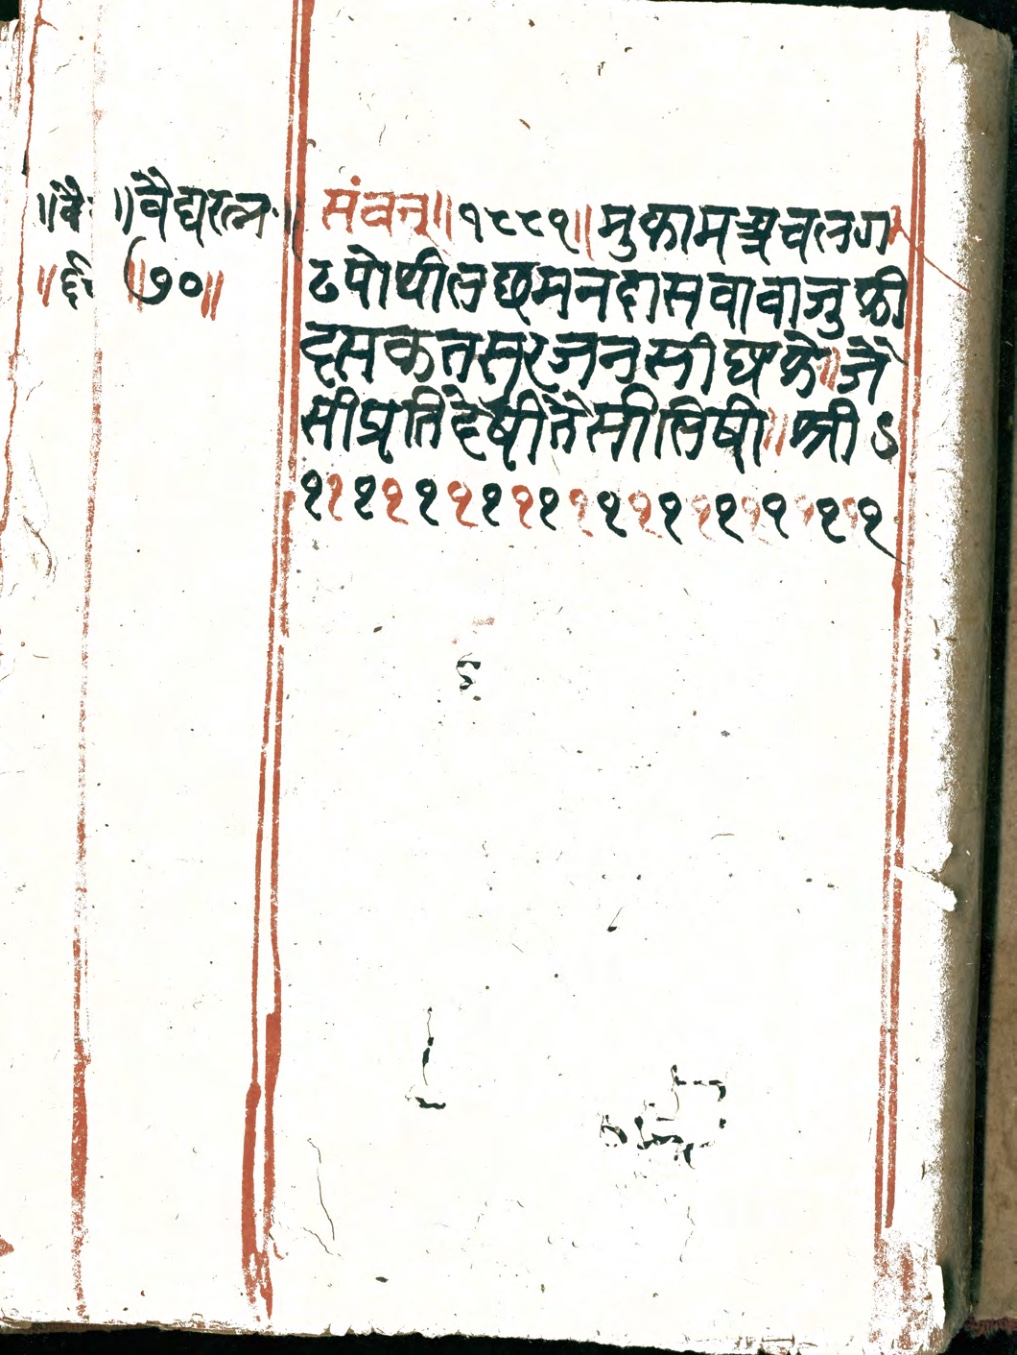 ॥वै
॥६९
॥वैद्यरत्न॥
॥७०॥
संवत्॥१८८१॥मुकामअचलग
ढपोथीलछमनदासवावाजुकी
दसकतसुरजनसींघके॥जै
सीप्रतिदेषीतैसीलिषी॥श्रीऽ
१११११११११११११११११११